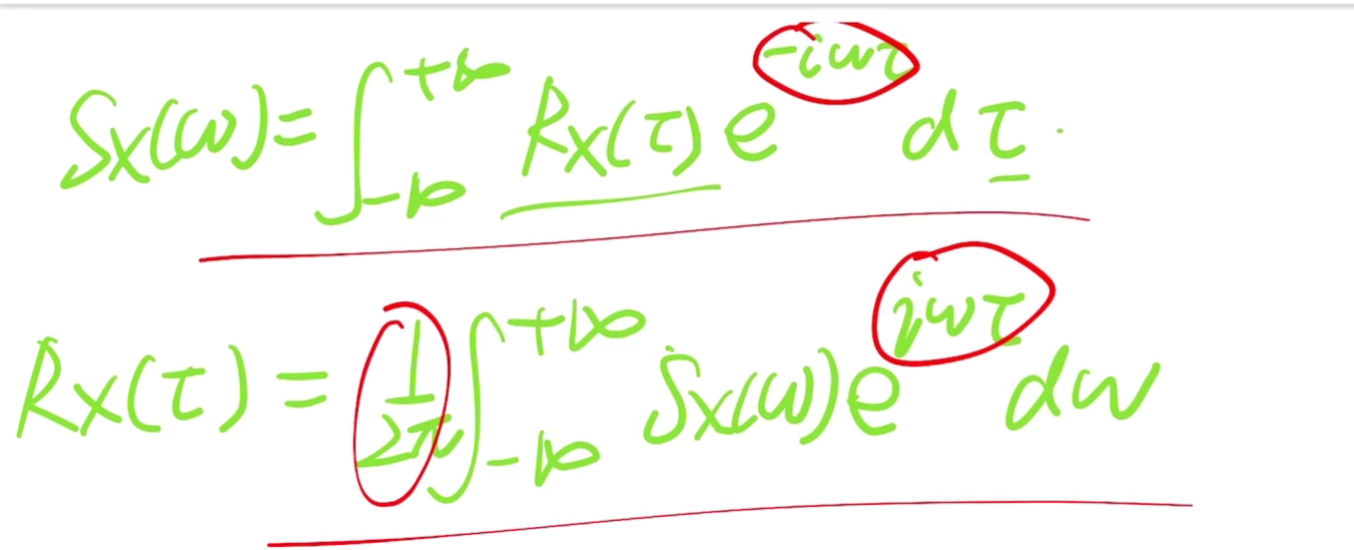 Sx(ω)=∫_{-∞}^{+∞} Rx(τ)e^{-iωτ} dτ.
Rx(τ)=\frac{1}{2π}∫_{-∞}^{+∞} Sx(ω)e^{jωτ} dω